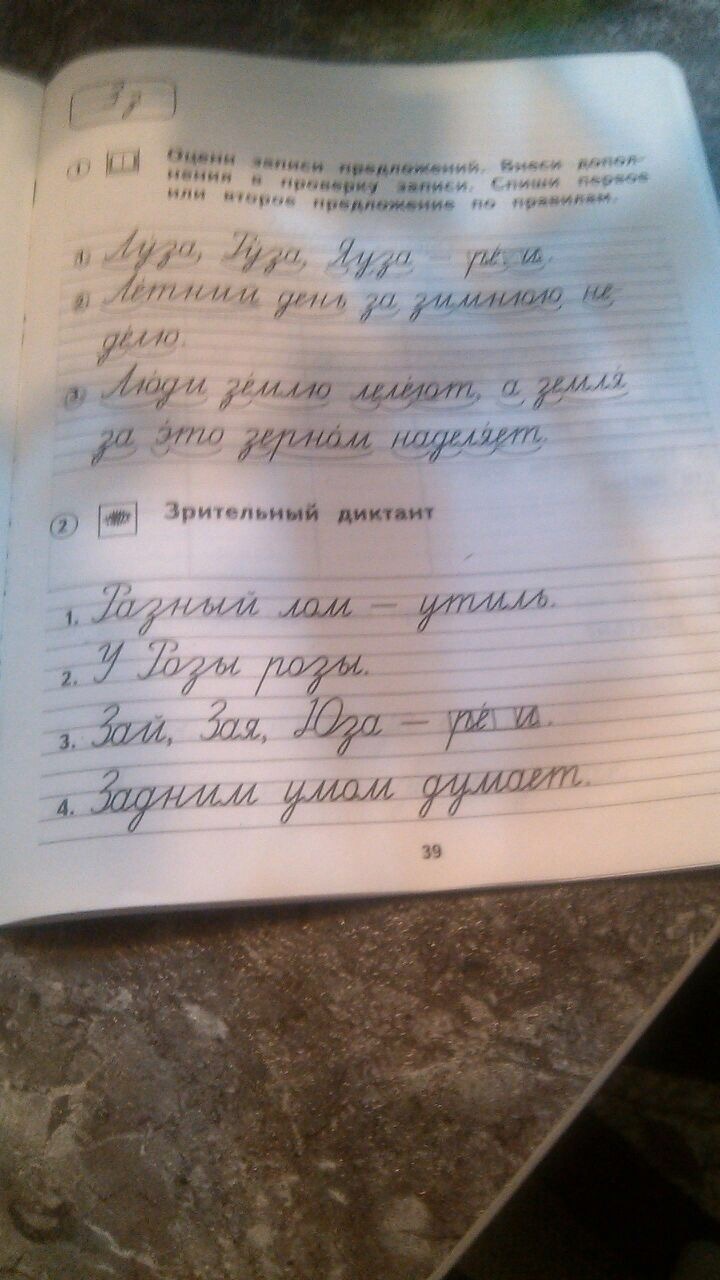 З з
1 Оцени записи предложений. Внеси допол-
нения в проверку записи. Спиши первое
или второе предложение по правилам.
1) Лу́за, Гу́за, Яуза – ре́ и.
2) Ле́тний день за зимнюю не-
де́лю.
3) Лю́ди зе́млю леле́ют, а земля́
за э́то зерно́м наделя́ет.
2 Зрительный диктант
1. Разный лом – утиль.
2. У Розы розы.
3. Зай, Зая, Юза – ре́ и.
4. Задним умом думает.
39